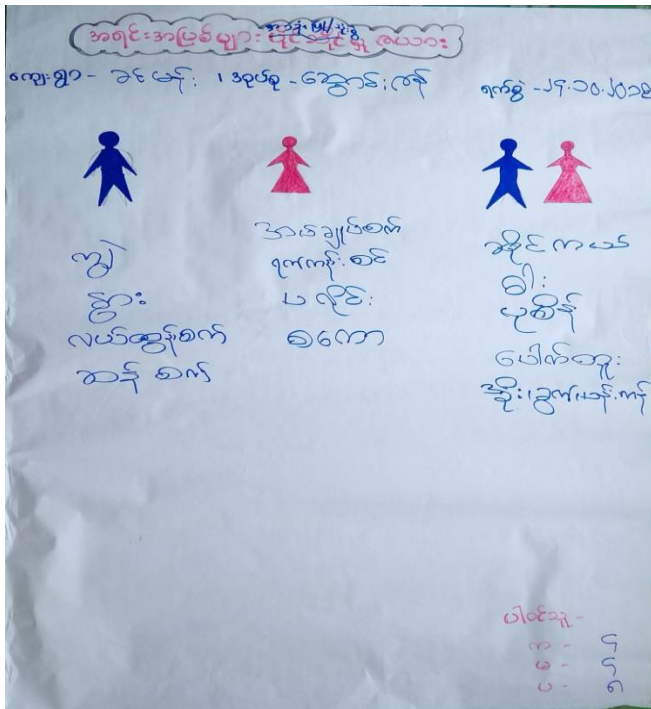 အသုံးပြု/သုံးစွဲ
အရင်းအမြစ်များ ပိုင်ဆိုင်မှု ဇယား
ကျေးရွာ - ခင်မန်း ၊ အုပ်စု -
ရက်စွဲ - ၂၄.၁၀.၂၀၁၉
ကျွဲ
နွား
လယ်ထွန်စက်
ဆန်စက်
အပ်ချုပ်စက်
ရက်ကန်းစင်
ပလိုင်း
စကော
ဆိုင်ကယ်
ဓါး
ပုဆိန်
ပေါက်တူး
အိုး၊ ခွက်၊ ပန်းကန်
ပါဝင်သူ -
က - ၄
မ - ၄
ပ - ၈